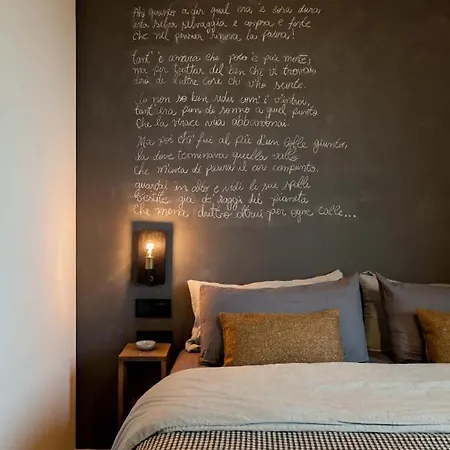 Ahi quanto a dir qual era è cosa dura
esta selva selvaggia e aspra e forte
che nel pensier rinova la paura!
Tant'è amara che poco è più morte;
ma per trattar del ben ch'i vi trovai,
dirò de l'altre cose ch'i v'ho scorte.
Io non so ben ridir com'i v'intrai,
tant'era pien di sonno a quel punto
che la verace via abbandonai.
Ma poi ch'i' fui al piè d'un colle giunto,
là dove terminava quella valle
che m'avea di paura il cor compunto,
guardai in alto e vidi le sue spalle
vestite già de' raggi del pianeta
che mena dritto altrui per ogne calle...